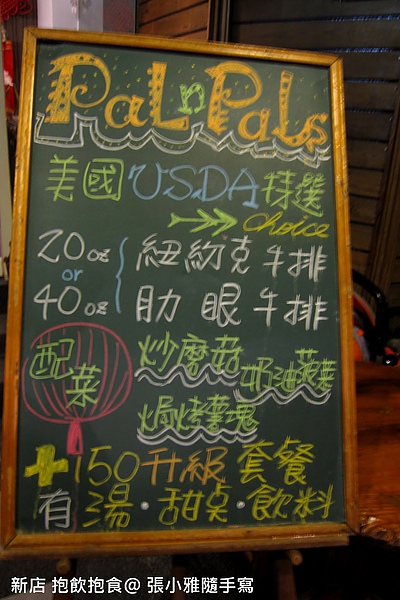 PaL n PaLs
美國 USDA 特選
choice
20oz or 40oz
紐約克 牛排
肋眼 牛排
配菜
炒磨菇
奶油菠菜
焗烤薯塊
+150 升級 套餐
有 湯·甜桌·飲料
新店 抱飲抱食@ 張小雅隨手寫